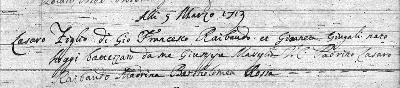 Alli 5 Marzo 1713
Cesaro Figlio di Gio Francesco Raibaudo et Gioneta Giugali nato
Hoggi battezzato da me Giuseppe Padrino Cesaro
Raibaudo Madrina Bartholomea Rossa